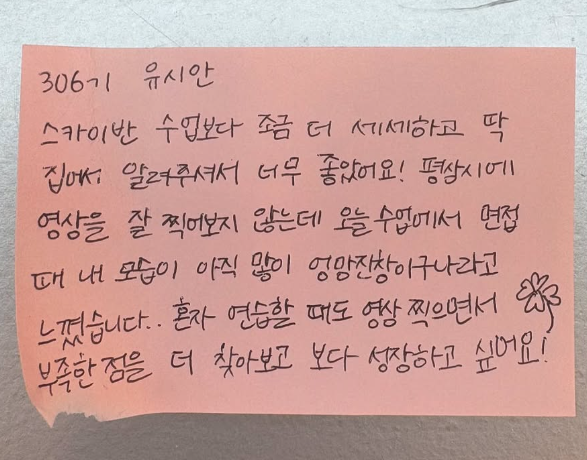 306기 유시안
스카이반 수업보다 조금 더 세세하고 딱
집어서 알려주셔서 너무 좋았어요! 평상시에
영상을 잘 찍어보지 않는데 오늘 수업에서 면접
때 내 모습이 아직 많이 엉망진창이구나라고
느꼈습니다.. 혼자 연습할 때도 영상 찍으면서
부족한 점을 더 찾아보고 보다 성장하고 싶어요!